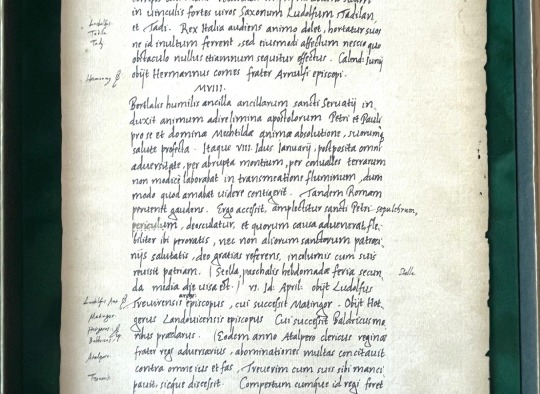 in vinculis fortes viros Saxonum Ludolfum, Tadilan,
et Tadi. Rex Italia audiens animo dolet, hortatur suos
ne id inultum ferrent, sed eiusmodi affectum nescio quo
obstaculo nullus etiamnum sequitur effectus. Calend. Iunij
obijt Hermannus comes frater Arnulfi episcopi.
MVIII.
humilis ancilla ancillarum sancti Servatij in
duxit animum adire limina apostolorum Petri et Pauli
pro se et domina Mechtilda animæ absolutione, summa
salute profecta. Itaque VIII. Idus Ianuarij, postposita omni
adversitate, per abrupta montium, per convalles terrarum
non modicè laborabat in transmeatione fluminum, dum
modo quod amabat videre contigerit. Tandem Romam
pervenit gaudens. Ergo accessit, amplectitur sancti Petri sepulchrum,
deosculatur, et quorum causa advenerat fle-
biliter ibi peroratis, nec non aliorum sanctorum patroci
nijs salutatis, deo gratias referens, incolumis cum suis
revisit patriam. | Stella paschalis hebdomadæ feria secun
da media die visa est. | VI. Id. April. obijt Ludolfus
Trevirensis episcopus, cui successit Matingor. Obijt Hot
gerus Landovicensis episcopus Cui successit Baldricus mo
ribus præclarus. | Eodem anno Atalpero clericus reginæ
frater regi adversarius, abominationes multas concitavit
contra omne ius et fas, Treverim cum suis sibi manci
pavit, sicque discessit. Compertum cumque id regi foret
Ludolfus
Tadila
Tady
Hermannus
Stella
Matingor
Hotgerus
Baldricus
Atalpero